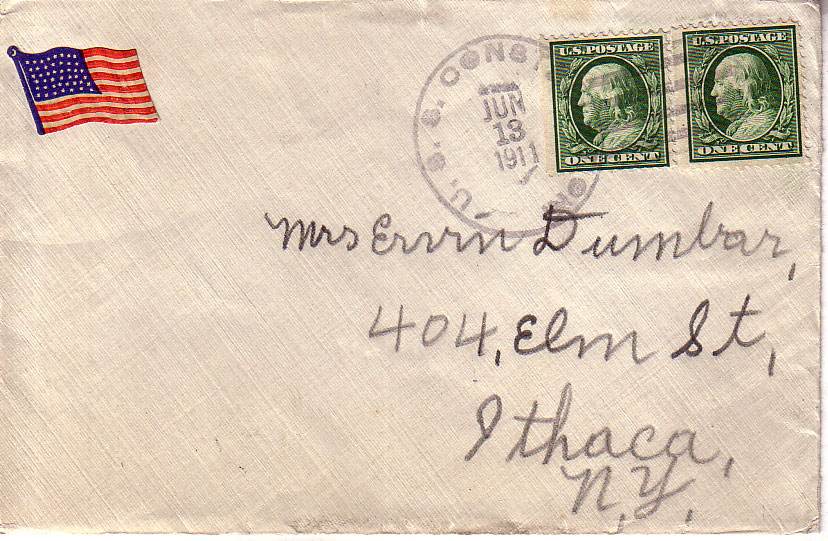 U.S. POSTAGE
ONE CENT
U.S. POSTAGE
ONE CENT
U. S. S. CONST
JUN
13
1911
Mrs Ervin Dumbar,
404, Elm St,
Ithaca,
N.Y.